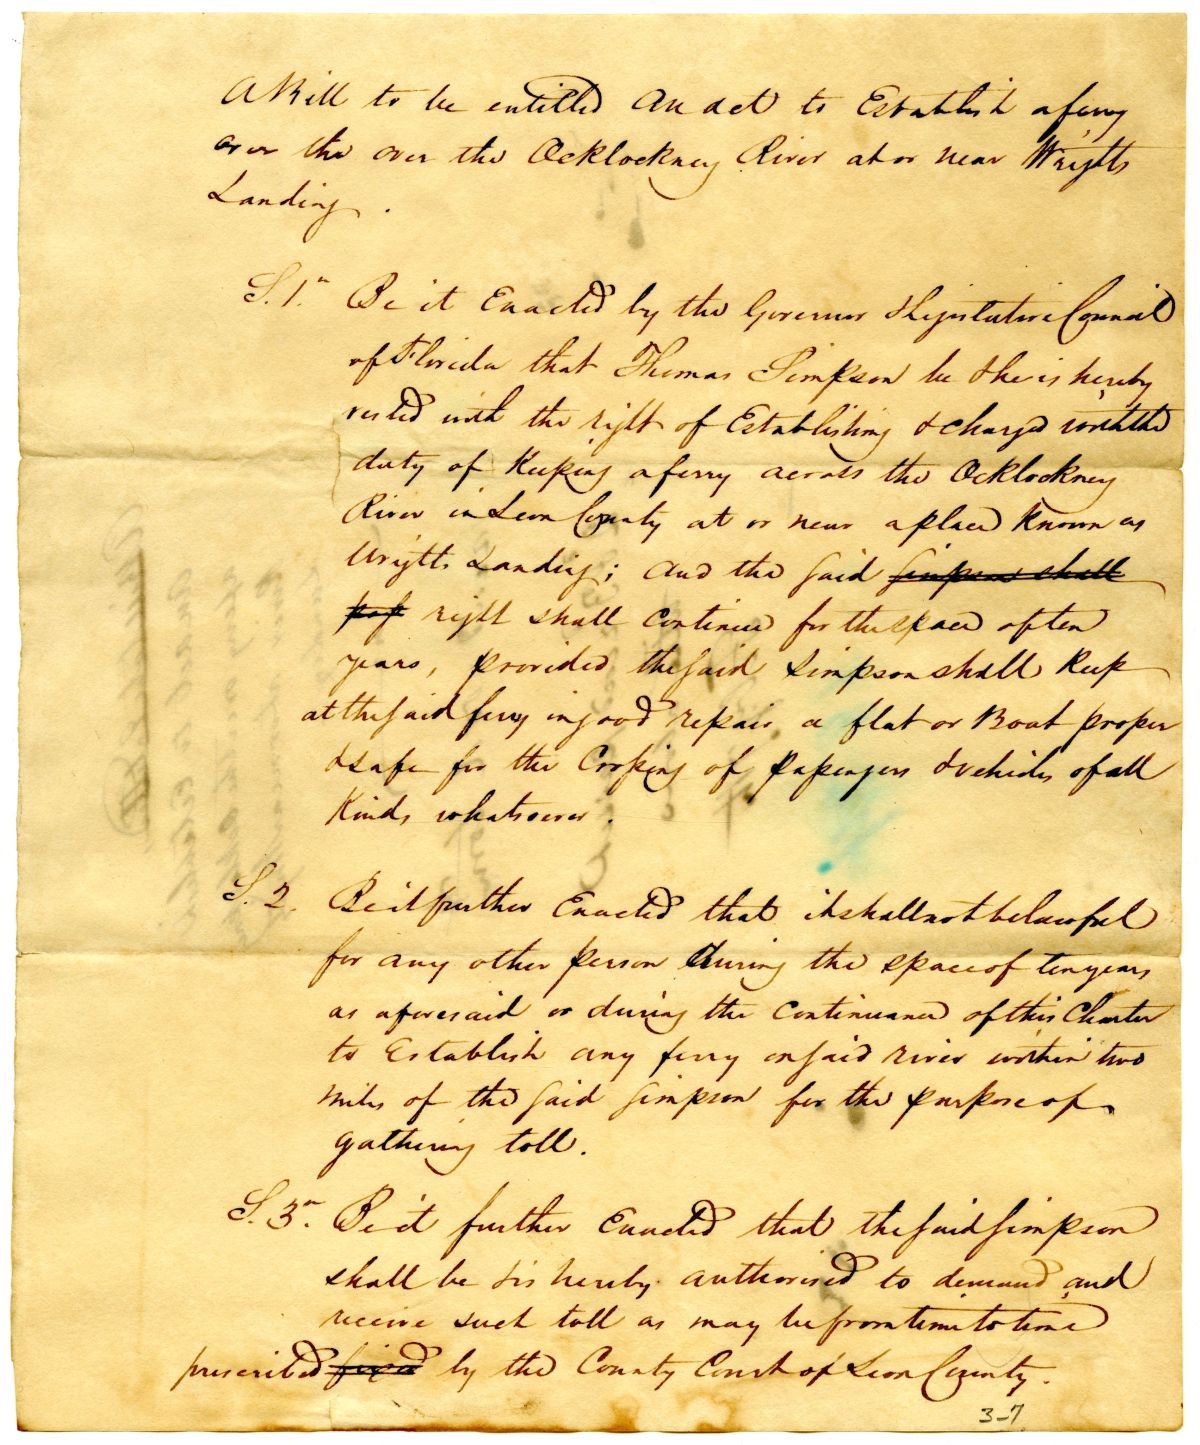 A Bill to be entitled An act to Establish a ferry
over the over the Ocklockney River at or near Wrights
Landing.
S. 1. Be it Enacted by the Governor & Legislative Council
of Florida that Thomas Simpson be & he is hereby
vested with the right of Establishing & charged with the
duty of Keeping a ferry across the Ocklockney
River in Leon County at or near a place known as
Wrights Landing; and the said Simpson shall
right shall continue for the space of ten
years, provided the said Simpson shall Keep
at the said ferry in good repair a flat or Boat proper
& safe for the Crossing of passengers & vehicles of all
Kinds whatsoever.
S. 2. Be it further Enacted that it shall not be lawful
for any other person during the space of ten years
as aforesaid or during the Continuance of this Charter
to Establish any ferry on said river within two
miles of the said Simpson for the purpose of
gathering toll.
S. 3. Be it further Enacted that the said Simpson
shall be & is hereby authorised to demand and
receive such toll as may be from time to time
prescribed fixed by the County Court of Leon County.
3-7